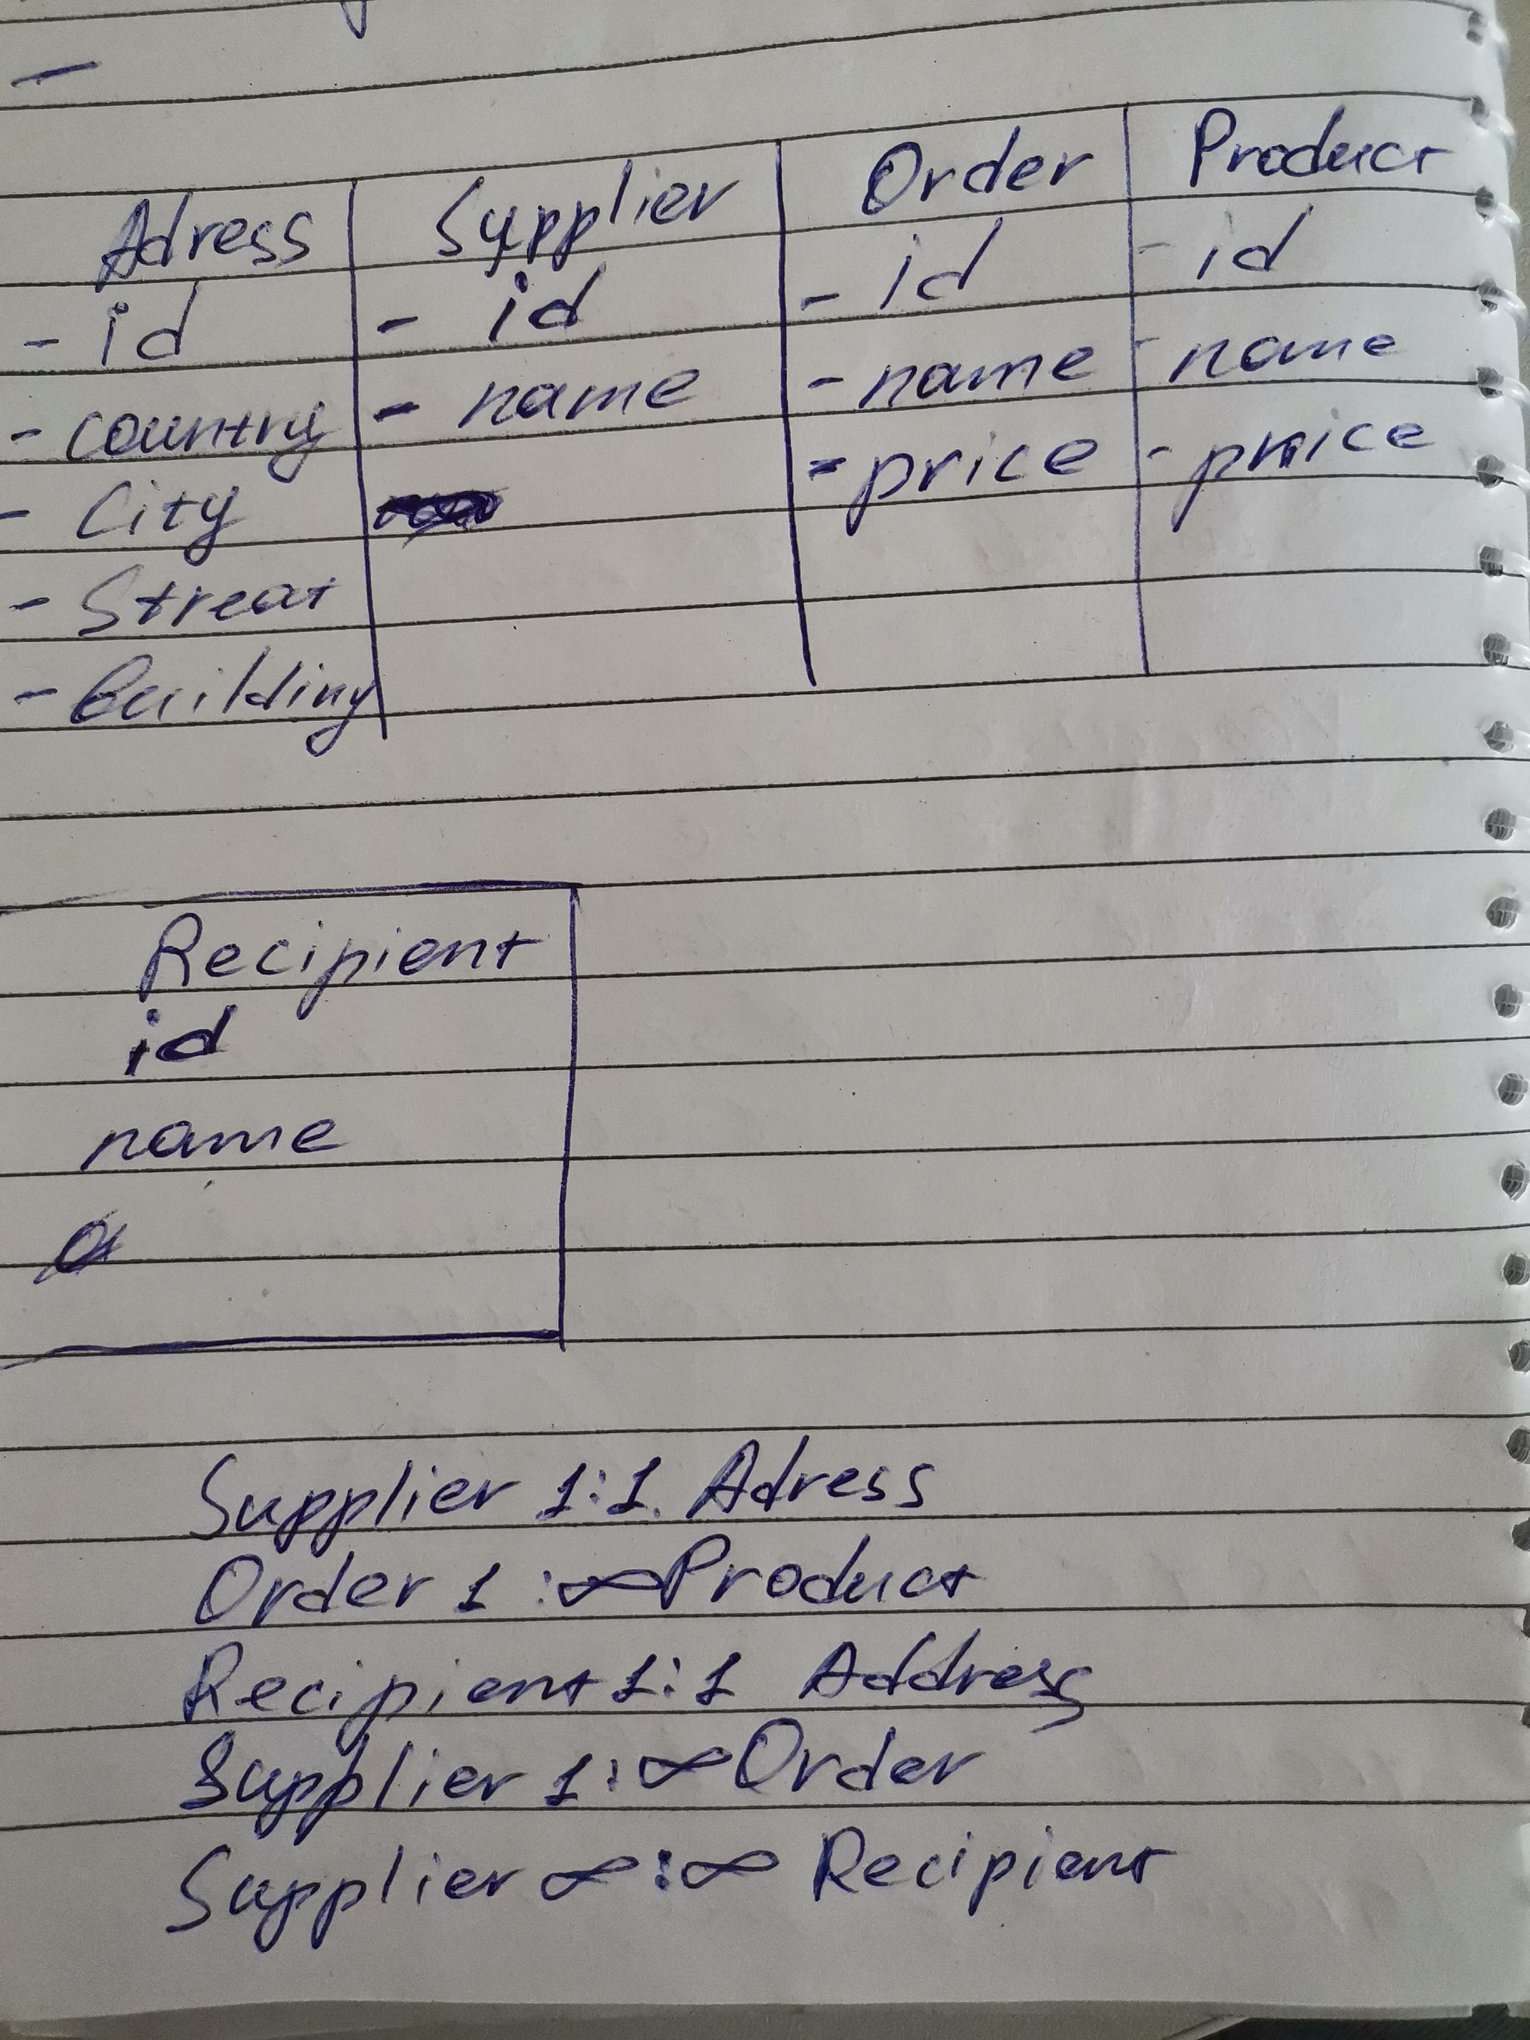 Adress Supplier Order Product
- id - id - id - id
- country - name - name - name
- City - price - price
- Streat
- Building
Recipient
id
name
Supplier 1:1 Adress
Order 1:∞ Product
Recipient 1:1 Address
Supplier 1:∞ Order
Supplier ∞:∞ Recipient